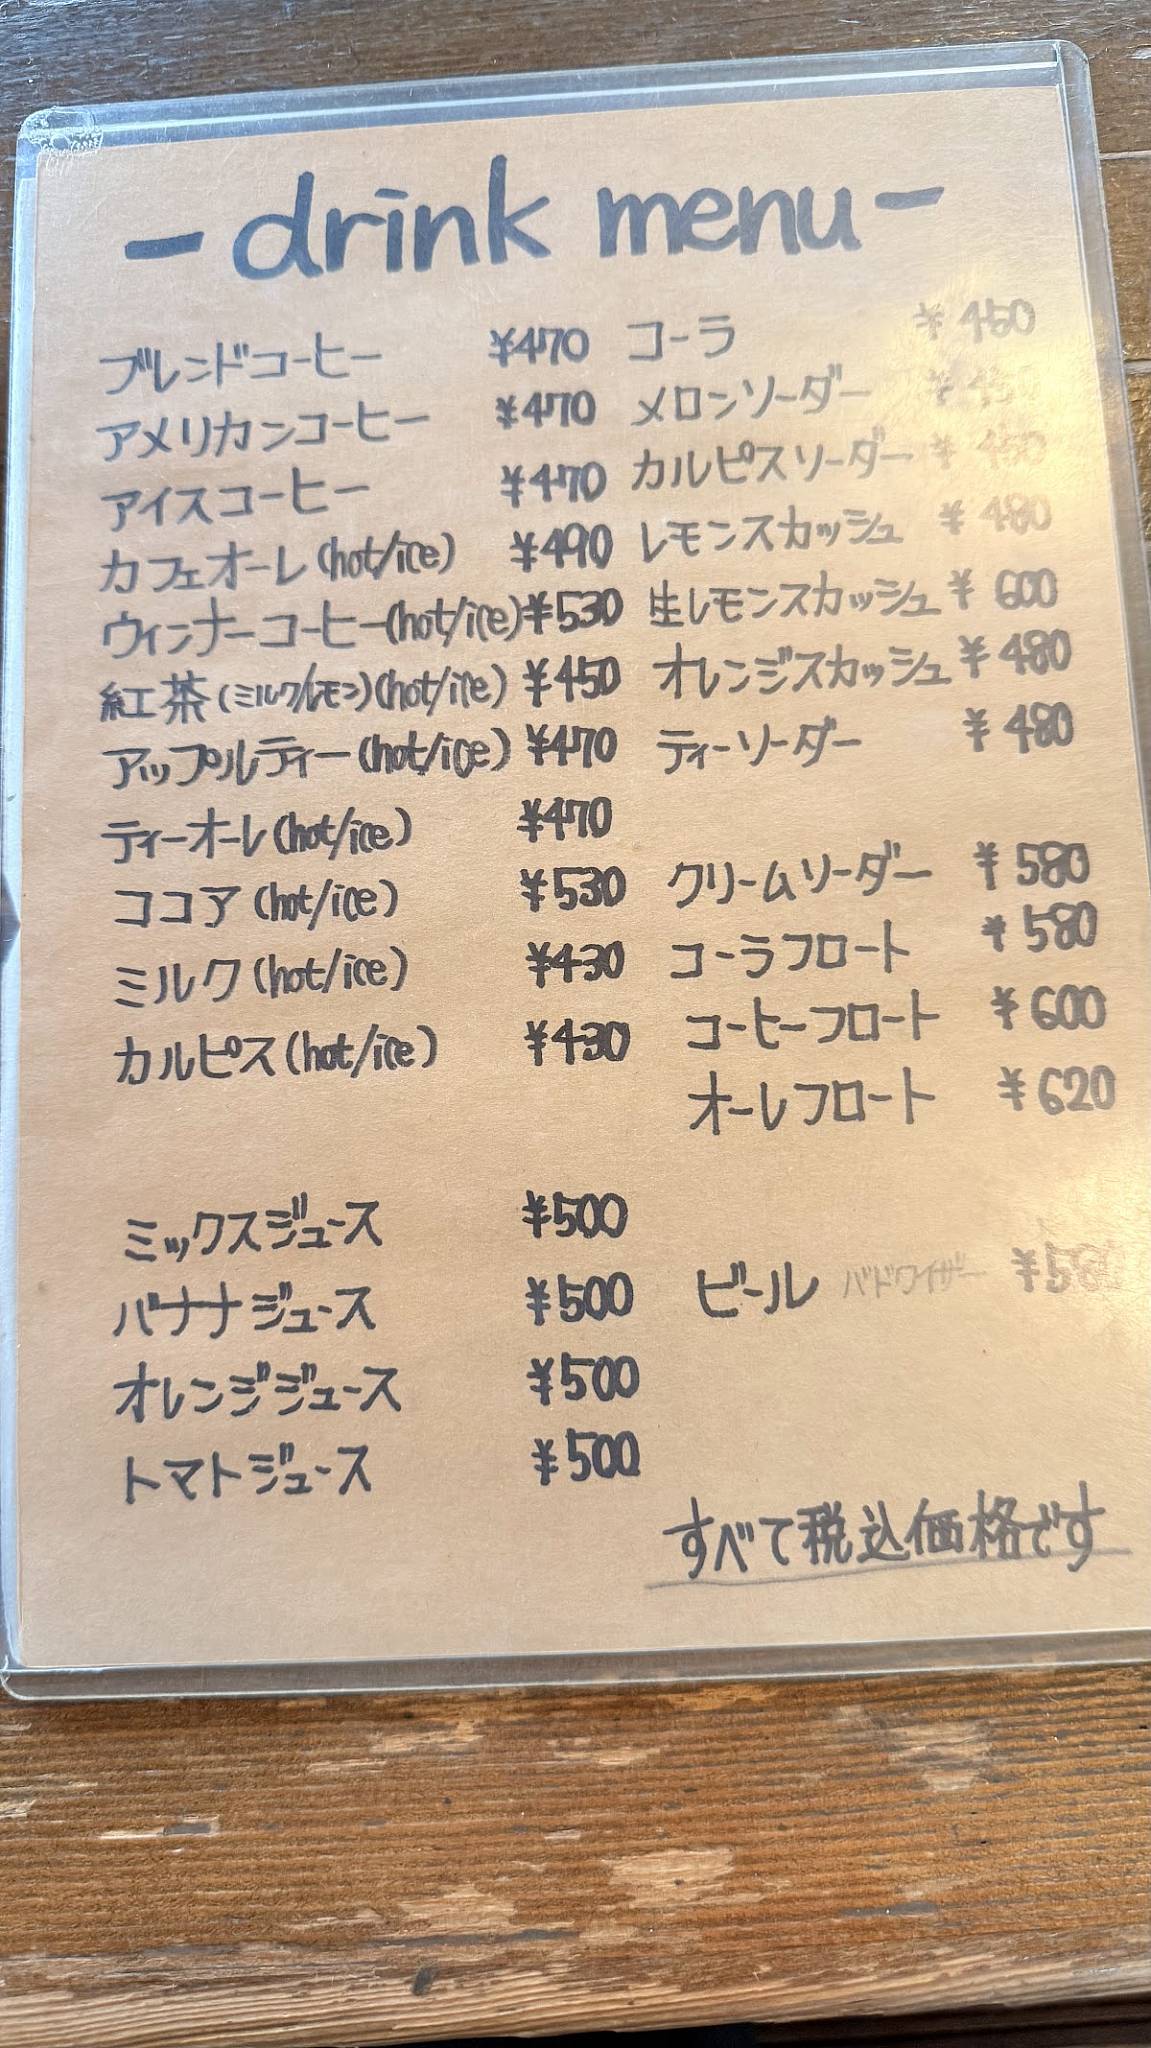 -drink menu-
ブレンドコーヒー ¥470
アメリカンコーヒー ¥470
アイスコーヒー ¥470
カフェオーレ(hot/ice) ¥490
ウィンナーコーヒー(hot/ice) ¥530
紅茶(ミルク/レモン)(hot/ice) ¥450
アップルティー(hot/ice) ¥470
ティーオーレ(hot/ice) ¥470
ココア(hot/ice) ¥530
ミルク(hot/ice) ¥430
カルピス(hot/ice) ¥430
ミックスジュース ¥500
バナナジュース ¥500
オレンジジュース ¥500
トマトジュース ¥500
コーラ ¥450
メロンソーダー ¥450
カルピスソーダー ¥450
レモンスカッシュ ¥480
生レモンスカッシュ ¥600
オレンジスカッシュ ¥480
ティーソーダー ¥480
クリームソーダー ¥580
コーラフロート ¥580
コーヒーフロート ¥600
オーレフロート ¥620
ビール バドワイザー ¥580
すべて税込価格です